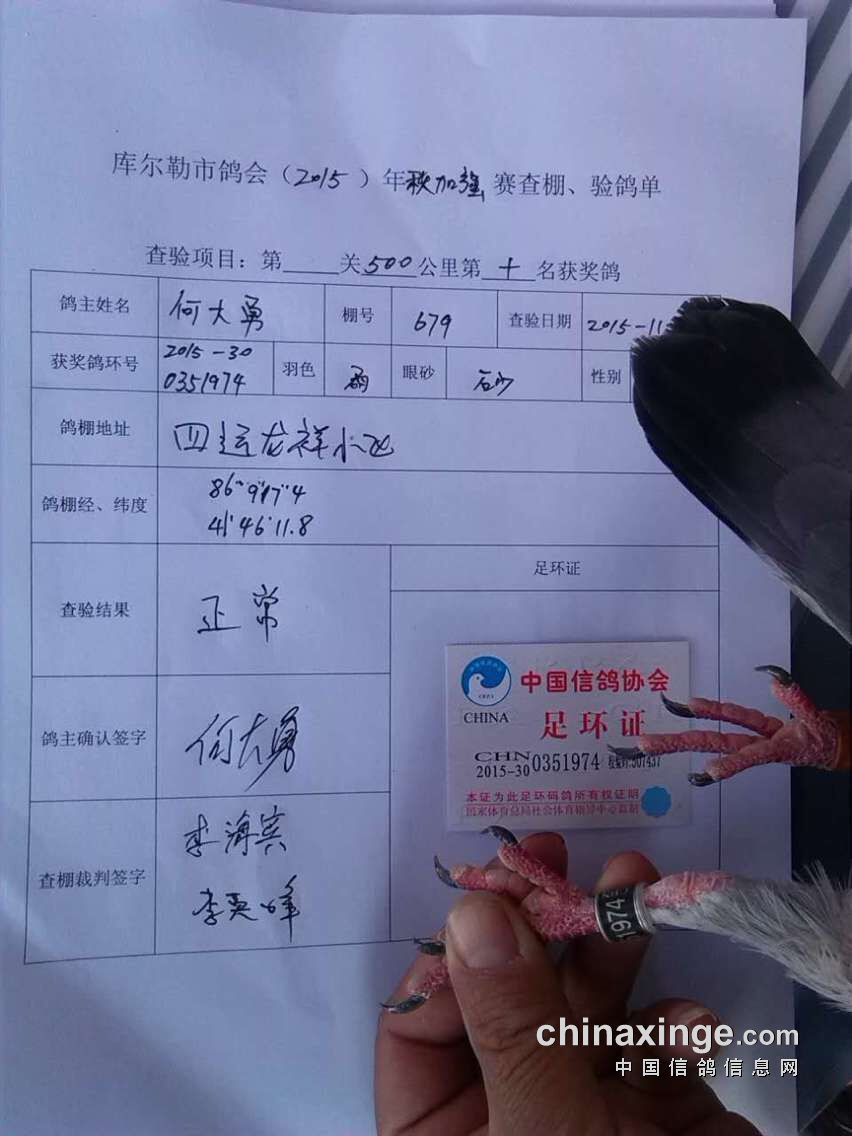 库尔勒市鸽会（2015）年秋加强赛查棚、验鸽单
查验项目：第____关500公里第十名获奖鸽
鸽主姓名 何大勇 棚号 679 查验日期 2015-11
获奖鸽环号 2015-30 0351974 羽色 雨 眼砂 石少 性别
鸽棚地址 四运龙祥小区
鸽棚经、纬度 86°9'17"4
41°46'11.8
查验结果 正常
足环证
鸽主确认签字 何大勇
查棚裁判签字 李海宾
李英峰
中国信鸽协会
CHINA
足环证
CHN
2015-30 0351974
本证为此足环码鸽所有权证明
国家体育总局社会体育指导中心监制
1974
chinaxinge.com
中国信鸽信息网